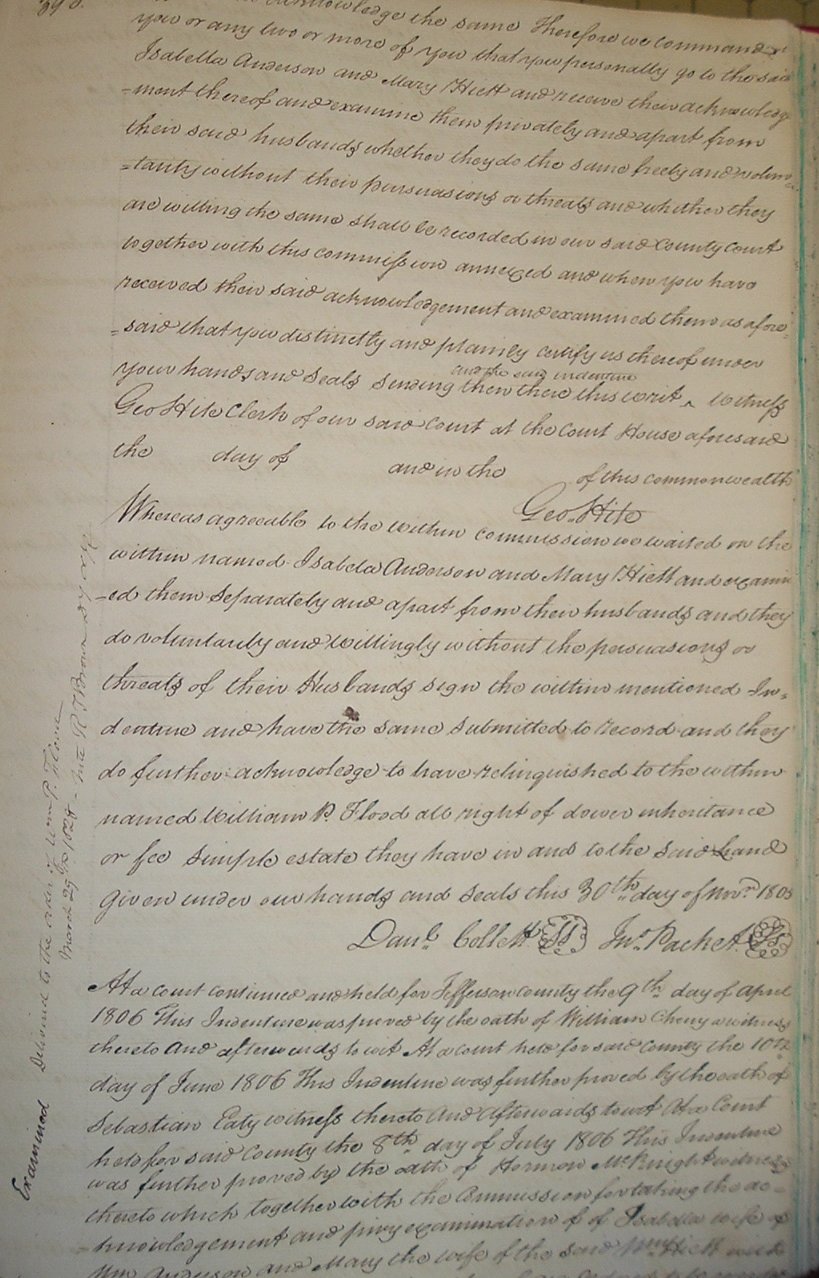 acknowledge the same Therefore we command
you or any two or more of you that you personally go to the said
Isabella Anderson and Mary Hiett and receive their acknowledg
=ment thereof and examine them privately and apart from
their said husbands whether they do the same freely and volun=
=tarily without their persuasions or threats and whether they
are willing the same shall be recorded in our said County Court
together with this commission annexed and when you have
received their said acknowledgement and examined them as afore=
=said that you distinctly and plainly certify us thereof under
and the said indenture
your hands and seals sending then there this writ ^ Witness
Geo Hite Clerk of our said Court at the Court House aforesaid
the day of and in the of this commonwealth
Geo. Hite
Whereas agreeable to the within commission we waited on the
within named Isabela Anderson and Mary Hiett and examin
=ed them Separately and apart from their husbands and they
do voluntarily and Willingly without the persuasions or
threats of their Husbands sign the within mentioned In=
denture and have the same submitted to record and they
do further acknowledge to have relinquished to the within
named William P. Flood all right of dower inheritance
or fee simple estate they have in and to the said Land
given under our hands and Seals this 30th day of Novr. 1805
Danl. Collett Jno. Packett
At a court continued and held for Jefferson County the 9th day of April
1806 This Indenture was proved by the oath of William Cherry a witness
thereto And afterwards to wit At a court held for said County the 10th
day of June 1806 This Indenture was further proved by the oath of
Sebastian Eaty witness thereto And Afterwards to wit At a Court
held for said County the 8th day of July 1806 This Indenture
was further proved by the oath of Hormon McKnight witness
thereto which together with the Commission for taking the ac=
=knowledgement and privy examination of of Isabella wife of
Wm Anderson and Mary the wife of the said Wm Hiett
Examined Delivered to the order of Wm P. Flood
March 29 1828